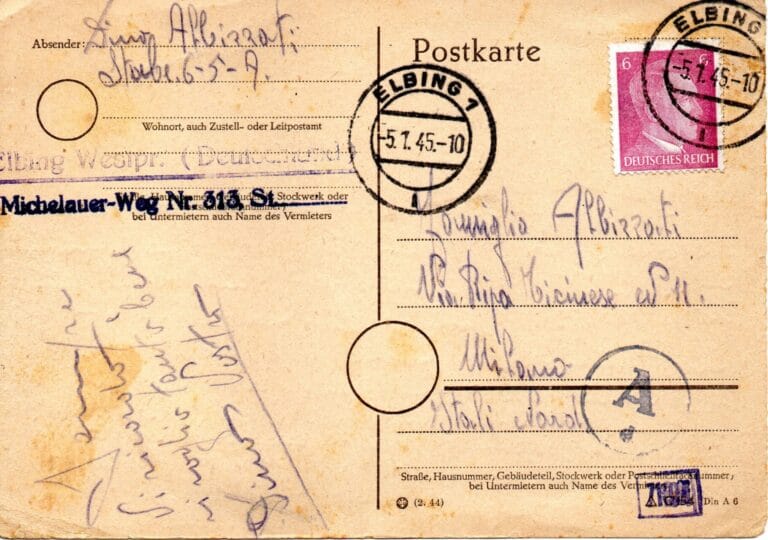 Absender: Dino Albizzati
Stube. 6-5-A.
Wohnort, auch Zustell- oder Leitpostamt
Elbing Westpr. (Deutschland)
Michelauer-Weg Nr. 313, St.
Straße, Hausnummer, Gebäudeteil, Stockwerk oder
bei Untermietern auch Name des Vermieters
Postkarte
ELBING 1
-5.1.45.-10
ELBING
-5.1.45.-10
6 6
DEUTSCHES REICH
Famiglia Albizzati
Via Ripa Ticinese N 11.
Milano
Itali Nord
A
Straße, Hausnummer, Gebäudeteil, Stockwerk oder Postschließfachnummer;
bei Untermietern auch Name des Vermieters
(2. 44)
Din A 6
Vi ricordo
vi voglio tanto bene
Dino Vostro